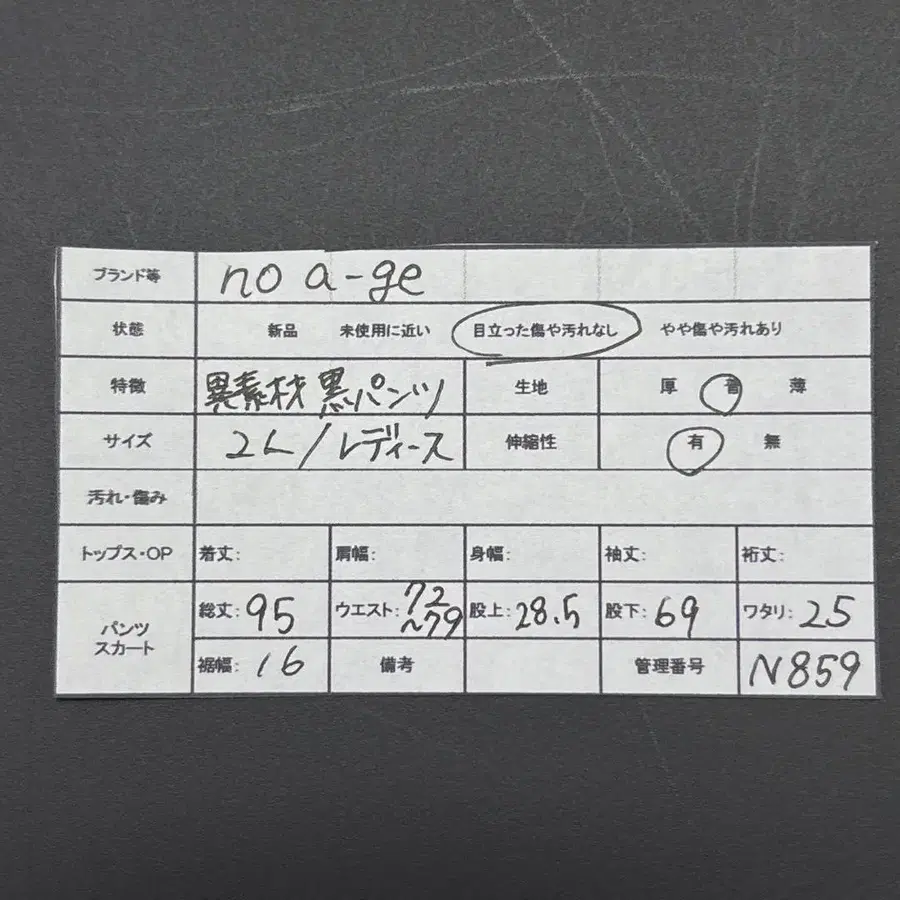 ブランド等 no a-ge
状態 新品 未使用に近い 目立った傷や汚れなし やや傷や汚れあり
特徴 異素材 黒パンツ 生地 厚 普 薄
サイズ 2L/レディース 伸縮性 有 無
汚れ・傷み
トップス・OP 着丈: 肩幅: 身幅: 袖丈: 裄丈:
パンツ スカート 総丈: 95 ウエスト: 72~79 股上: 28.5 股下: 69 ワタリ: 25
裾幅: 16 備考 管理番号 N859